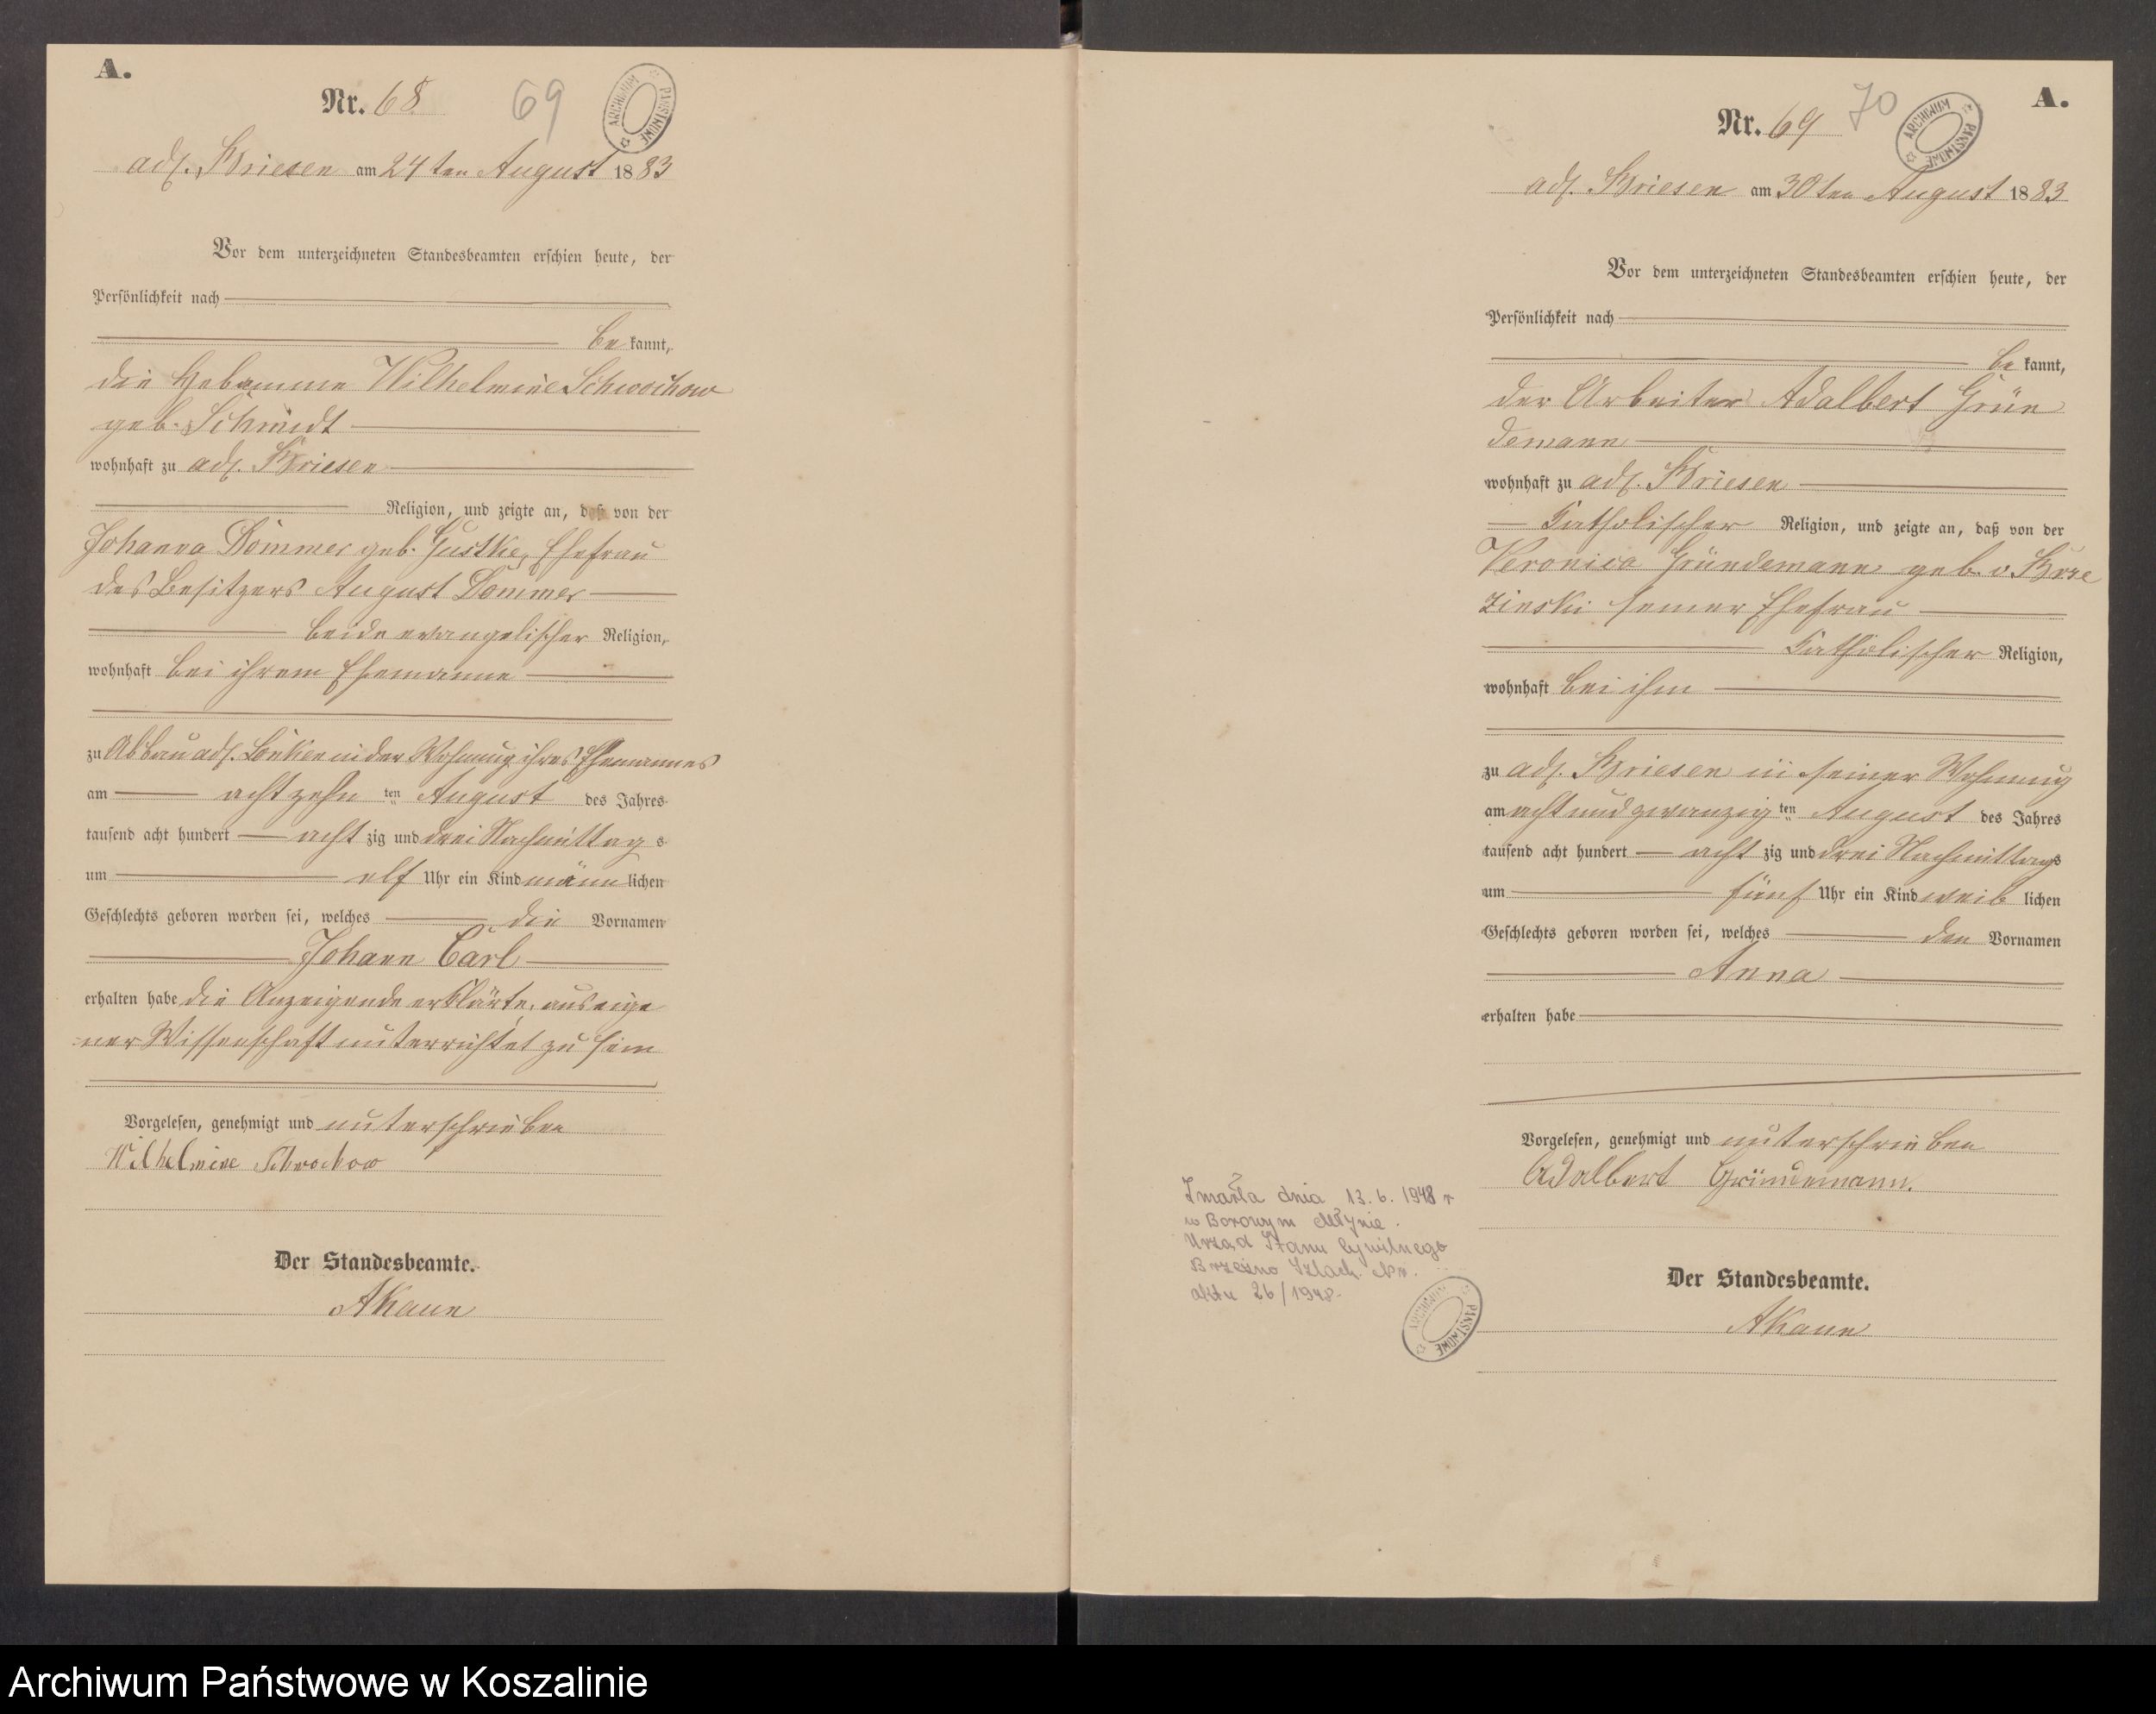 A.
Nr. 68
69
ARCHIWUM PAŃSTWOWE
adl. Briesen am 24ten August 1883
Vor dem unterzeichneten Standesbeamten erschien heute, der
Persönlichkeit nach
be kannt,
die Hebamme Wilhelmine Schwochow
geb. Schmidt
wohnhaft zu adl. Briesen
Religion, und zeigte an, daß von der
Johanna Dommer geb. Gustke, Ehefrau
des Besitzers August Dommer
beide evangelischer Religion,
wohnhaft bei ihrem Ehemanne
zu Abbau adl. Lonken in der Wohnung ihres Ehemannes
am achtzehn ten August des Jahres
tausend acht hundert acht zig und drei Nachmittag s
um elf Uhr ein Kind männ lichen
Geschlechts geboren worden sei, welches die Vornamen
Johann Carl
erhalten habe die Anzeigende erklärte, aus eige
ner Wissenschaft unterrichtet zu sein
Vorgelesen, genehmigt und unterschrieben
Wilhelmine Schwochow
Der Standesbeamte.
A.
Nr. 69
70
ARCHIWUM PAŃSTWOWE
adl. Briesen am 30ten August 1883
Vor dem unterzeichneten Standesbeamten erschien heute, der
Persönlichkeit nach
be kannt,
der Arbeiter Adalbert Grün
demann
wohnhaft zu adl. Briesen
Katholischer Religion, und zeigte an, daß von der
Veronica Gründemann geb. v. Brze
zinski seiner Ehefrau
Katholischer Religion,
wohnhaft bei ihm
zu adl. Briesen in seiner Wohnung
am acht und zwanzig ten August des Jahres
tausend acht hundert acht zig und drei Nachmittags
um fünf Uhr ein Kind weib lichen
Geschlechts geboren worden sei, welches den Vornamen
Anna
erhalten habe
Vorgelesen, genehmigt und unterschrieben
Adalbert Gründemann.
Der Standesbeamte.
Zmarła dnia 13. 6. 1948 r
w Borowym Młynie.
Urząd Stanu Cywilnego
Brzeźno Szlach. Nr.
aktu 26/1948.
ARCHIWUM PAŃSTWOWE
Archiwum Państwowe w Koszalinie